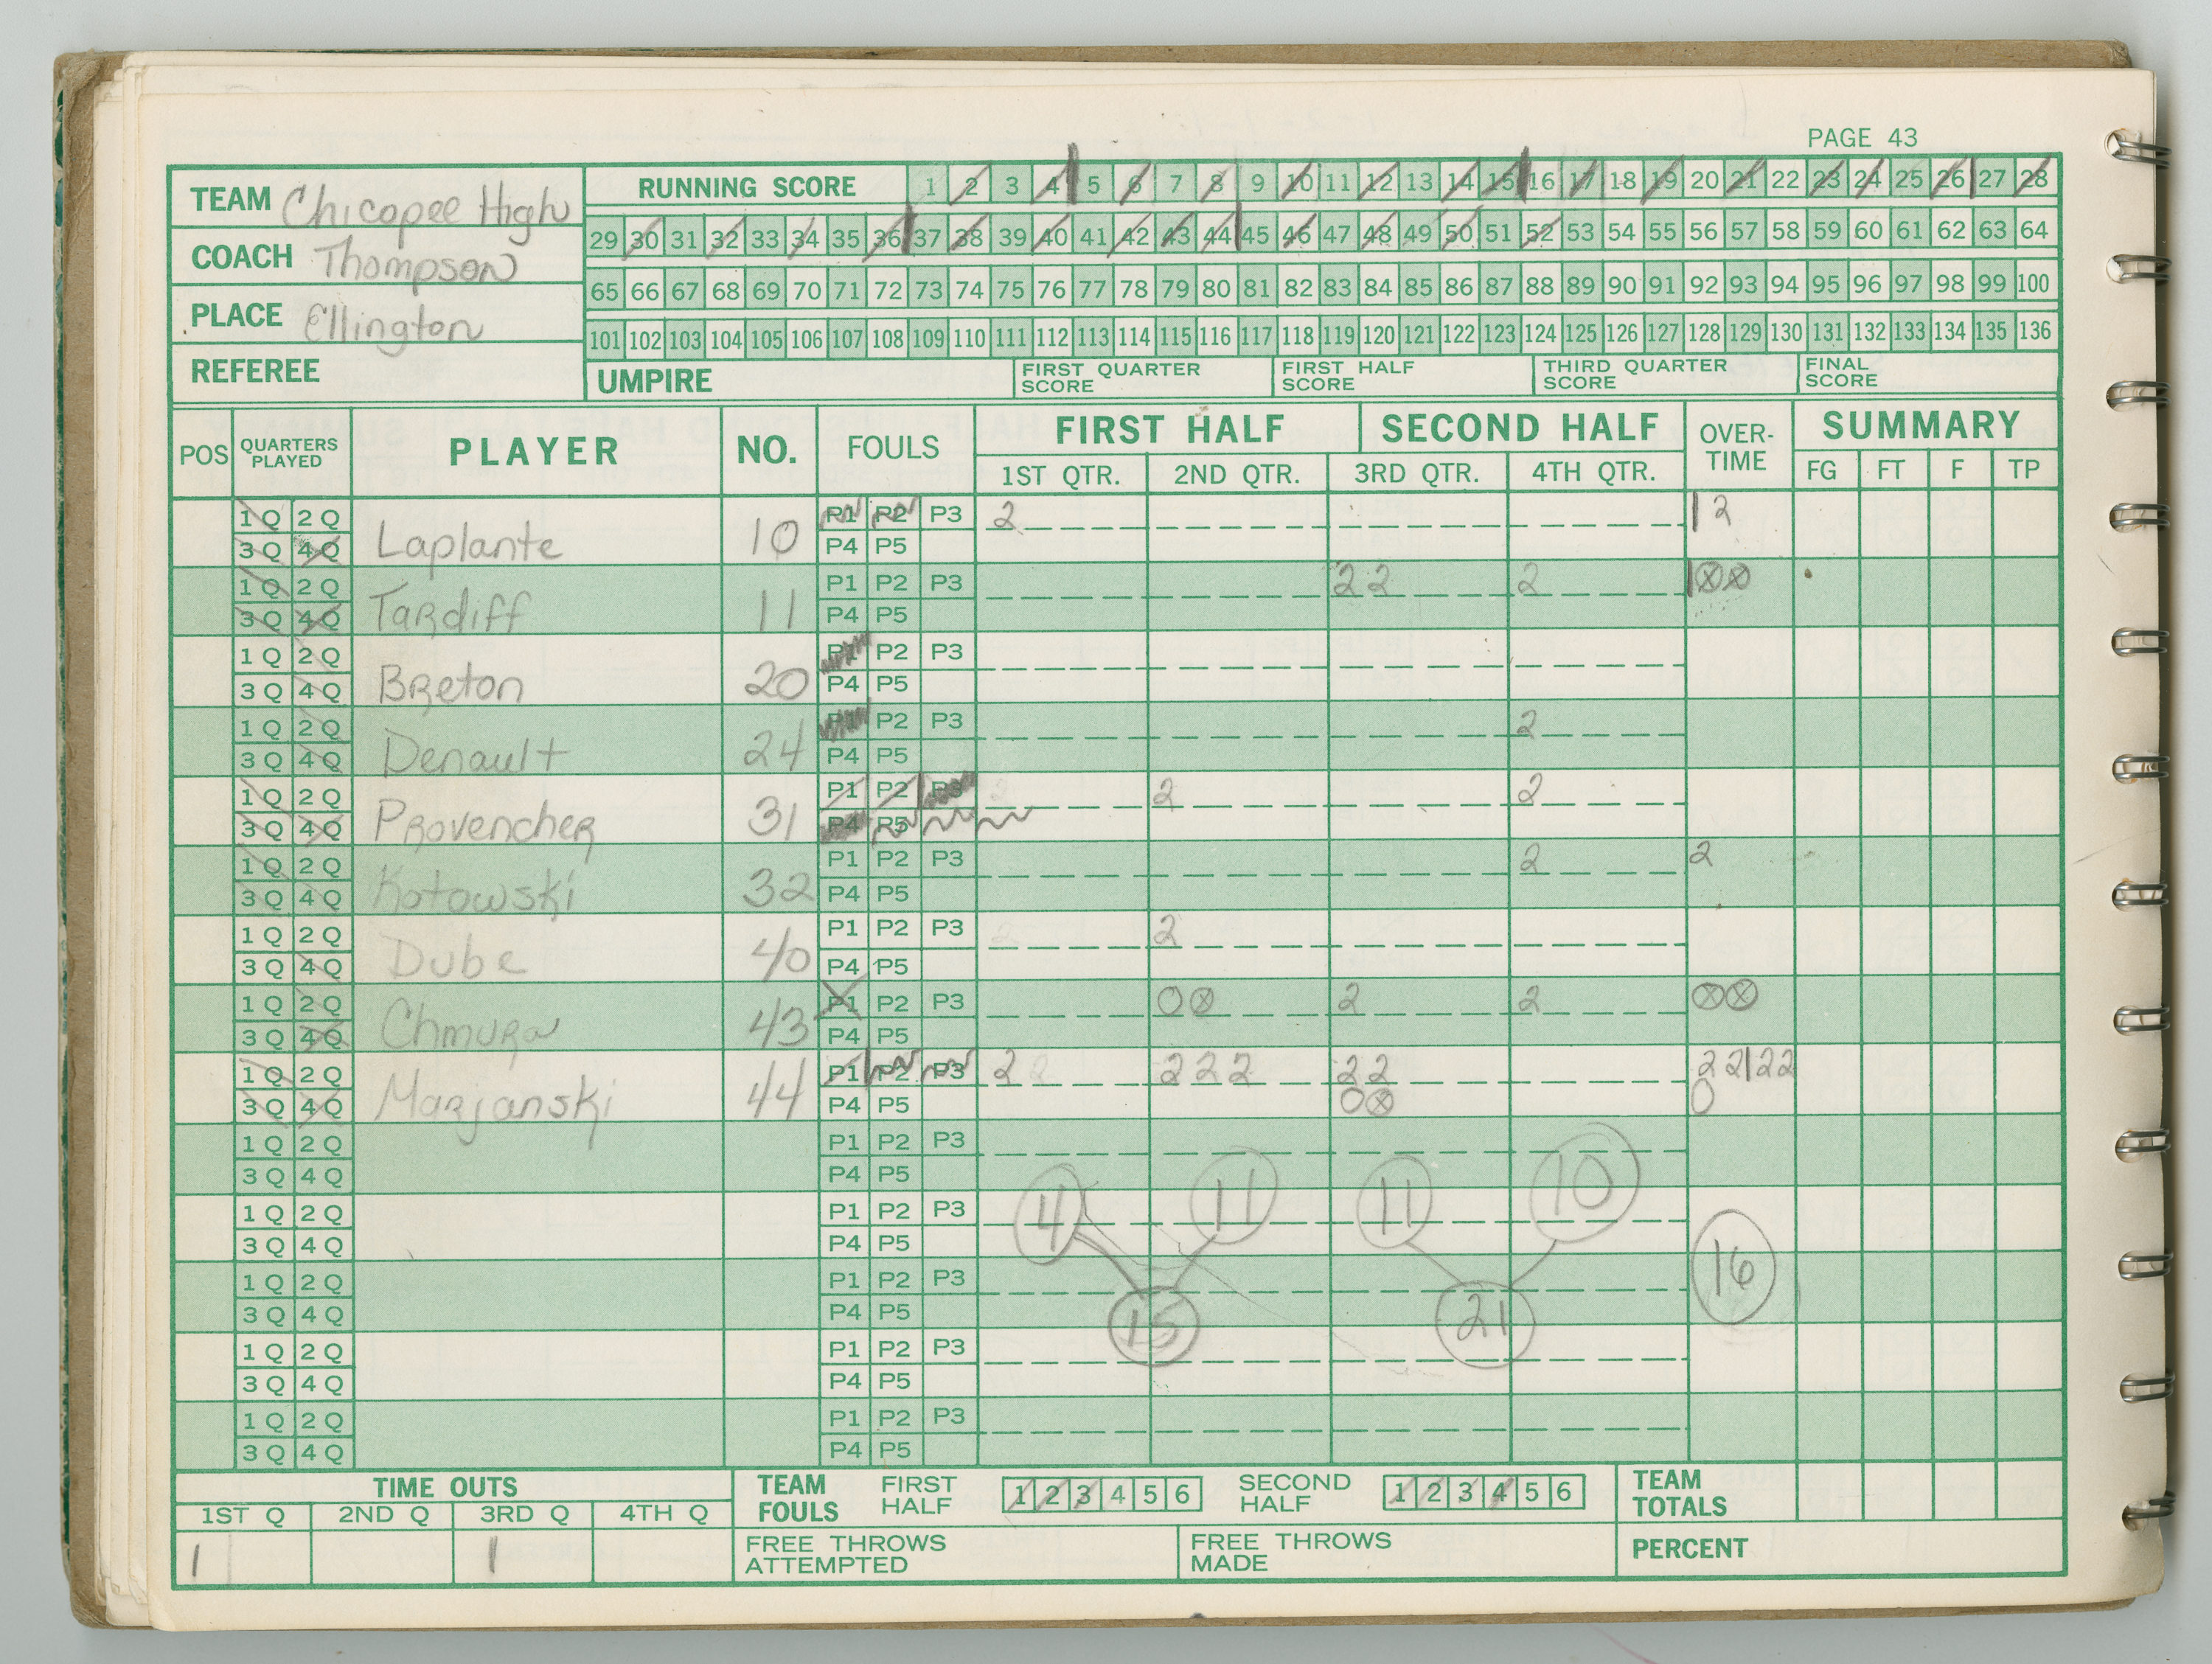 PAGE 43
TEAM Chicopee High
COACH Thompson
PLACE Ellington
REFEREE
RUNNING SCORE 1 2 3 4 5 6 7 8 9 10 11 12 13 14 15 16 17 18 19 20 21 22 23 24 25 26 27 28
29 30 31 32 33 34 35 36 37 38 39 40 41 42 43 44 45 46 47 48 49 50 51 52 53 54 55 56 57 58 59 60 61 62 63 64
65 66 67 68 69 70 71 72 73 74 75 76 77 78 79 80 81 82 83 84 85 86 87 88 89 90 91 92 93 94 95 96 97 98 99 100
101 102 103 104 105 106 107 108 109 110 111 112 113 114 115 116 117 118 119 120 121 122 123 124 125 126 127 128 129 130 131 132 133 134 135 136
UMPIRE FIRST QUARTER SCORE FIRST HALF SCORE THIRD QUARTER SCORE FINAL SCORE
POS QUARTERS PLAYED PLAYER NO. FOULS FIRST HALF SECOND HALF OVER-TIME SUMMARY
1ST QTR. 2ND QTR. 3RD QTR. 4TH QTR. FG FT F TP
1 Q 2 Q P1 P2 P3 2 | 2
3 Q 4 Q Laplante 10 P4 P5
1 Q 2 Q P1 P2 P3 2 2 2 | ⓧ ⓧ
3 Q 4 Q Tardiff 11 P4 P5
1 Q 2 Q P1 P2 P3
3 Q 4 Q Breton 20 P4 P5
1 Q 2 Q P1 P2 P3 2
3 Q 4 Q Denault 24 P4 P5
1 Q 2 Q P1 P2 P3 2 2
3 Q 4 Q Provencher 31 P4 P5
1 Q 2 Q P1 P2 P3 2 2
3 Q 4 Q Kotowski 32 P4 P5
1 Q 2 Q P1 P2 P3 2
3 Q 4 Q Dube 40 P4 P5
1 Q 2 Q P1 P2 P3 O ⓧ 2 2 ⓧ ⓧ
3 Q 4 Q Chmura 43 P4 P5
1 Q 2 Q P1 P2 P3 2 2 2 2 2 2 2 2 | 2 2
3 Q 4 Q Marjanski 44 P4 P5 O ⓧ O
1 Q 2 Q P1 P2 P3
3 Q 4 Q P4 P5
1 Q 2 Q P1 P2 P3 4 11 11 10
3 Q 4 Q P4 P5
1 Q 2 Q P1 P2 P3 16
3 Q 4 Q P4 P5 15 21
1 Q 2 Q P1 P2 P3
3 Q 4 Q P4 P5
1 Q 2 Q P1 P2 P3
3 Q 4 Q P4 P5
TIME OUTS
1ST Q 2ND Q 3RD Q 4TH Q
1 1
TEAM FOULS FIRST HALF 1 2 3 4 5 6 SECOND HALF 1 2 3 4 5 6 TEAM TOTALS
FREE THROWS ATTEMPTED FREE THROWS MADE PERCENT